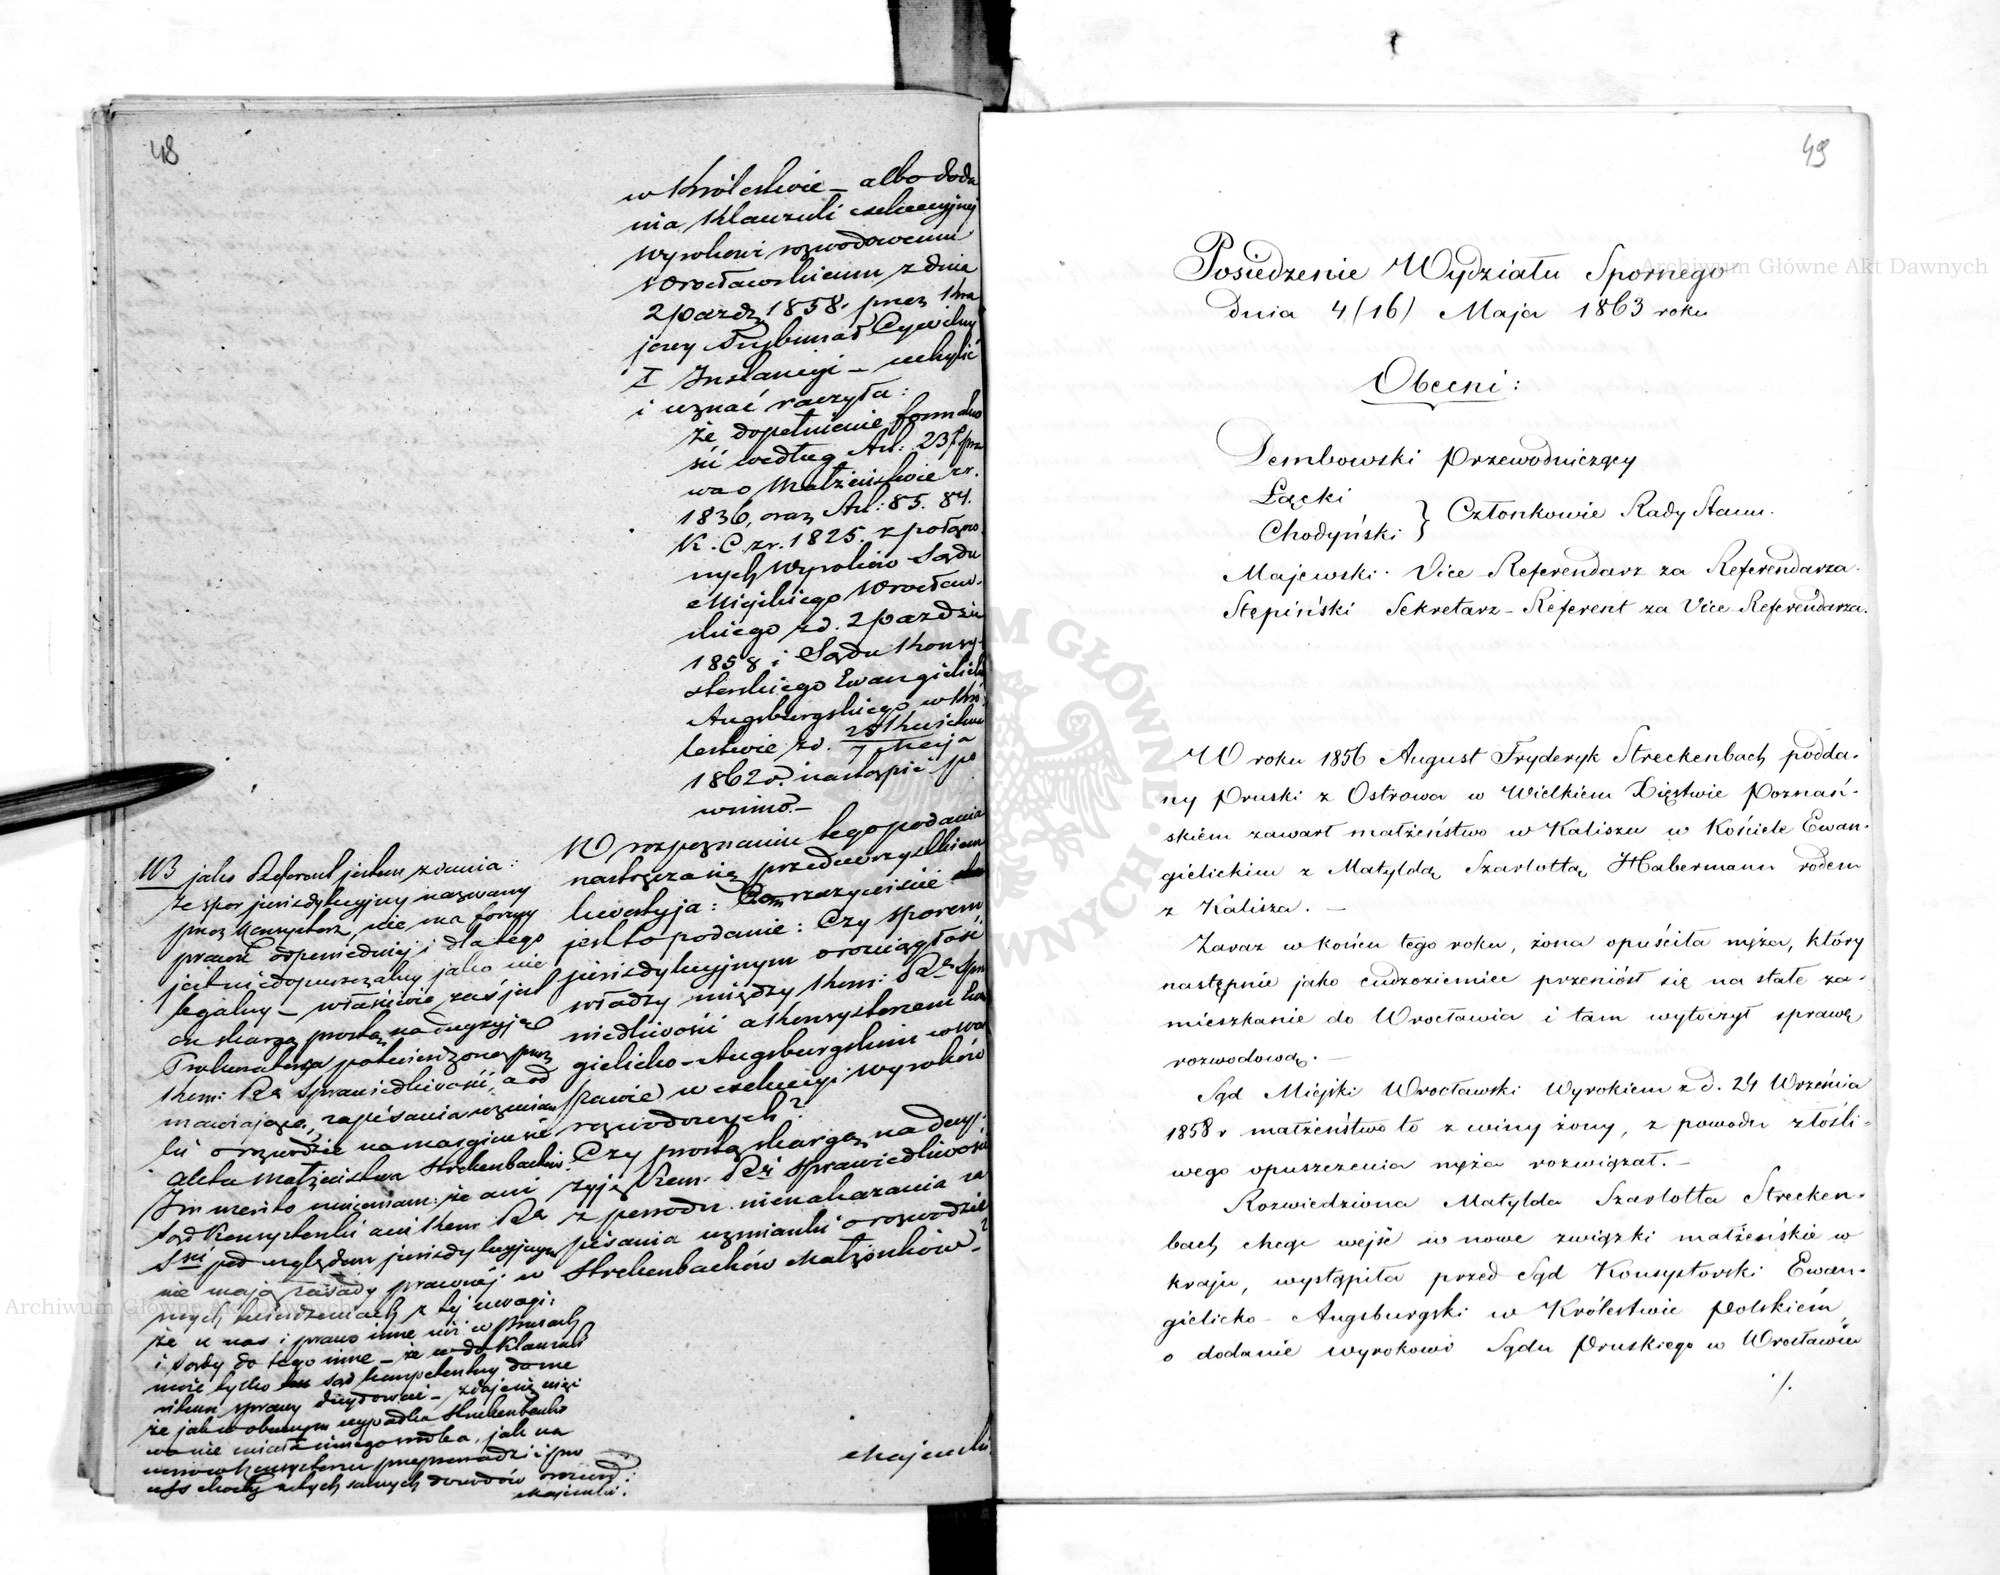 48
w Królestwie – albo doda
nia Klauzuli exekucyjnej
wyrokowi rozwodowemu
Wrocławskiemu z dnia
2 paźdz. 1858. przez Kra
jowy Trybunał Cywilny
I Instancyi – uchylić
i uznać raczyła:
że dopełnienie formalno
ści według Art: 237 pra
wa o Małżeństwie z r.
1836, oraz Art: 85. 84.
K. C. z r. 1825. z połączo
nych Wyroków Sądu
Miejskiego Wrocław.
skiego z d. 2 paździe
1858 i Sądu Konsy-
storskiego Ewangielick
Augsburgskiego w Kró
lestwie z d. 25 Kwietnia
7 Maja
1862 r. nastąpić po
winno. –
W rozpoznaniu tego podania
nastręcza się przedewszystkiem
kwestyja: Czem rzeczywiście
jest to podanie: Czy sporem
jurisdykcyjnym o rozciągłość
władzy między Kom: Rz. Spra
wiedliwości a Konsystorzem Ewan
gielicko-Augsburgskim w wa
sprawie w exekucyi wyroków
rozwodowych?
Czy prostą skargą na decy-
zyję Kom. Rz. Sprawiedliwości
z powodu nienakazania za
pisania wzmianki o rozwodzie
Strekenbachów Małżonków?
Majewski
NB jako Referent jestem zdania:
że spór jurisdykcyjny nazwany
przez Konsystorz, nie ma formy
prawem odpowiedniej i dlatego
jest niedopuszczalny jako nie
legalny – właściwie zaś jest
on skargą prostą na decyzyję
Prokuratora potwierdzoną przez
Kom: Rz. Sprawiedliwości, a od
mawiającą, zapisania wzmian
ki o rozwodzie na marginesie
aktu małżeństwa Strekenbachów.
In merito mniemam: że ani
Sąd Konsystorski ani Kom. Rz.
Sści pod względem jurisdykcyjnym
nie mają zasady prawnej w
swych twierdzeniach z tej uwagi:
że u nas i prawo inne niż w Prusach
i Sądy do tego inne – że w do Klauzuli
może tylko Sąd kompetentny do me
ritum sprawy decydować – zdaje się mi
że jak w obecnym wypadku Strekenbacho
wa nie miała innego środka, jak na
nowo w Konsystorzu przeprowadzić i pro
ces choćby z tych samych dowodów
Majewski.
49
Posiedzenie Wydziału Spornego
dnia 4/16/ Maja 1863 roku
Obecni:
Dembowski Przewodniczący
Łącki
Chodyński } Członkowie Rady Stanu.
Majewski. Vice Referendarz za Referendarza.
Stępiński Sekretarz-Referent za Vice-Referendarza.
W roku 1856 August Fryderyk Streckenbach podda-
ny Pruski z Ostrowa w Wielkiem Xięstwie Poznań-
skiem zawarł małżeństwo w Kaliszu w Kościele Ewan-
gielickim z Matyldą Szarlottą Habermann rodem
z Kalisza. –
Zaraz w końcu tego roku, żona opuściła męża, który
następnie jako cudzoziemiec przeniósł się na stałe za-
mieszkanie do Wrocławia i tam wytoczył sprawę
rozwodową. –
Sąd Miejski Wrocławski Wyrokiem z d. 24 Września
1858 r małżeństwo to z winy żony, z powodu złośli-
wego opuszczenia męża rozwiązał. –
Rozwiedziona Matylda Szarlotta Strecken-
bach chcąc wejść w nowe związki małżeńskie w
kraju, wystąpiła przed Sąd Konsystorski Ewan-
gielicko-Augsburgski w Królestwie Polskiem,
o dodanie wyrokowi Sądu Pruskiego w Wrocławiu
./.
Archiwum Główne Akt Dawnych
Archiwum Główne Akt Dawnych